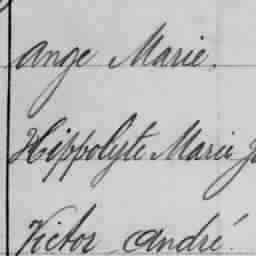 Ange Marie.
Hippolyte Marie
Victor André.